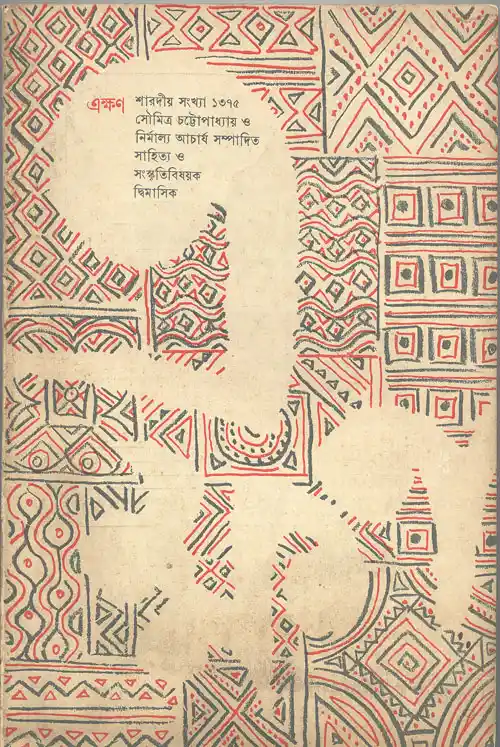 এক্ষণ শারদীয় সংখ্যা ১৩৭৫
সৌমিত্র চট্টোপাধ্যায় ও
নির্মাল্য আচার্য সম্পাদিত
সাহিত্য ও
সংস্কৃতিবিষয়ক
দ্বিমাসিক